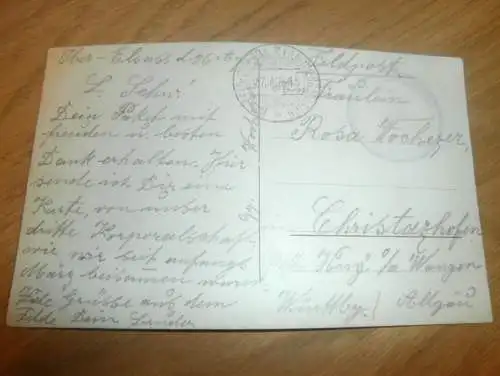 Ober-Elsass d. 26.
L. Sefa!
Dein Paket mit
freuden u. besten
Dank erhalten. Hier
sende ich Dir eine
Karte, von unser
dritte Korporalschaft
wie wir seit anfangs
März beisammen waren
Viele Grüsse aus dem
Felde Dein Bruder
Feldpost.
Fräulein
Rosa Vochezer,
Christazhofen
b/ Wangen
Württbg. / Allgäu